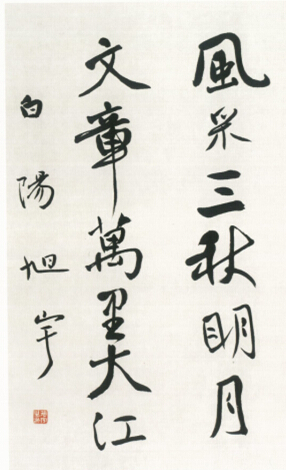 風采三秋明月
文章萬里大江
白陽旭宇